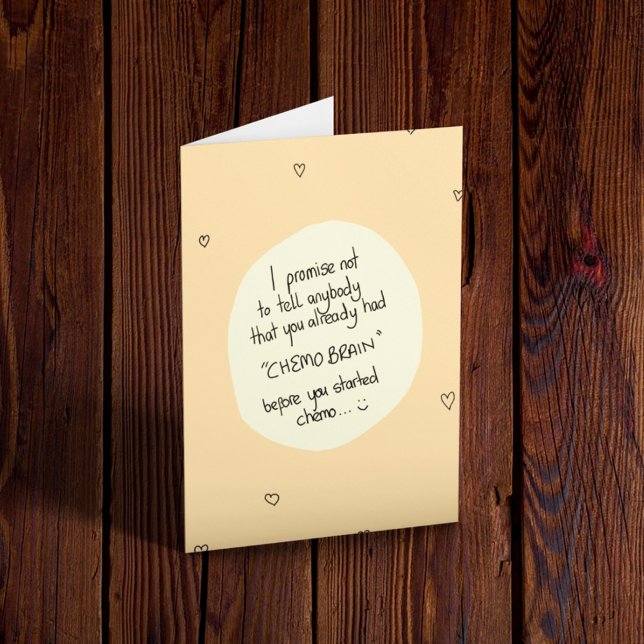 I promise not
to tell anybody
that you already had
"CHEMO BRAIN"
before you started
chemo... :)